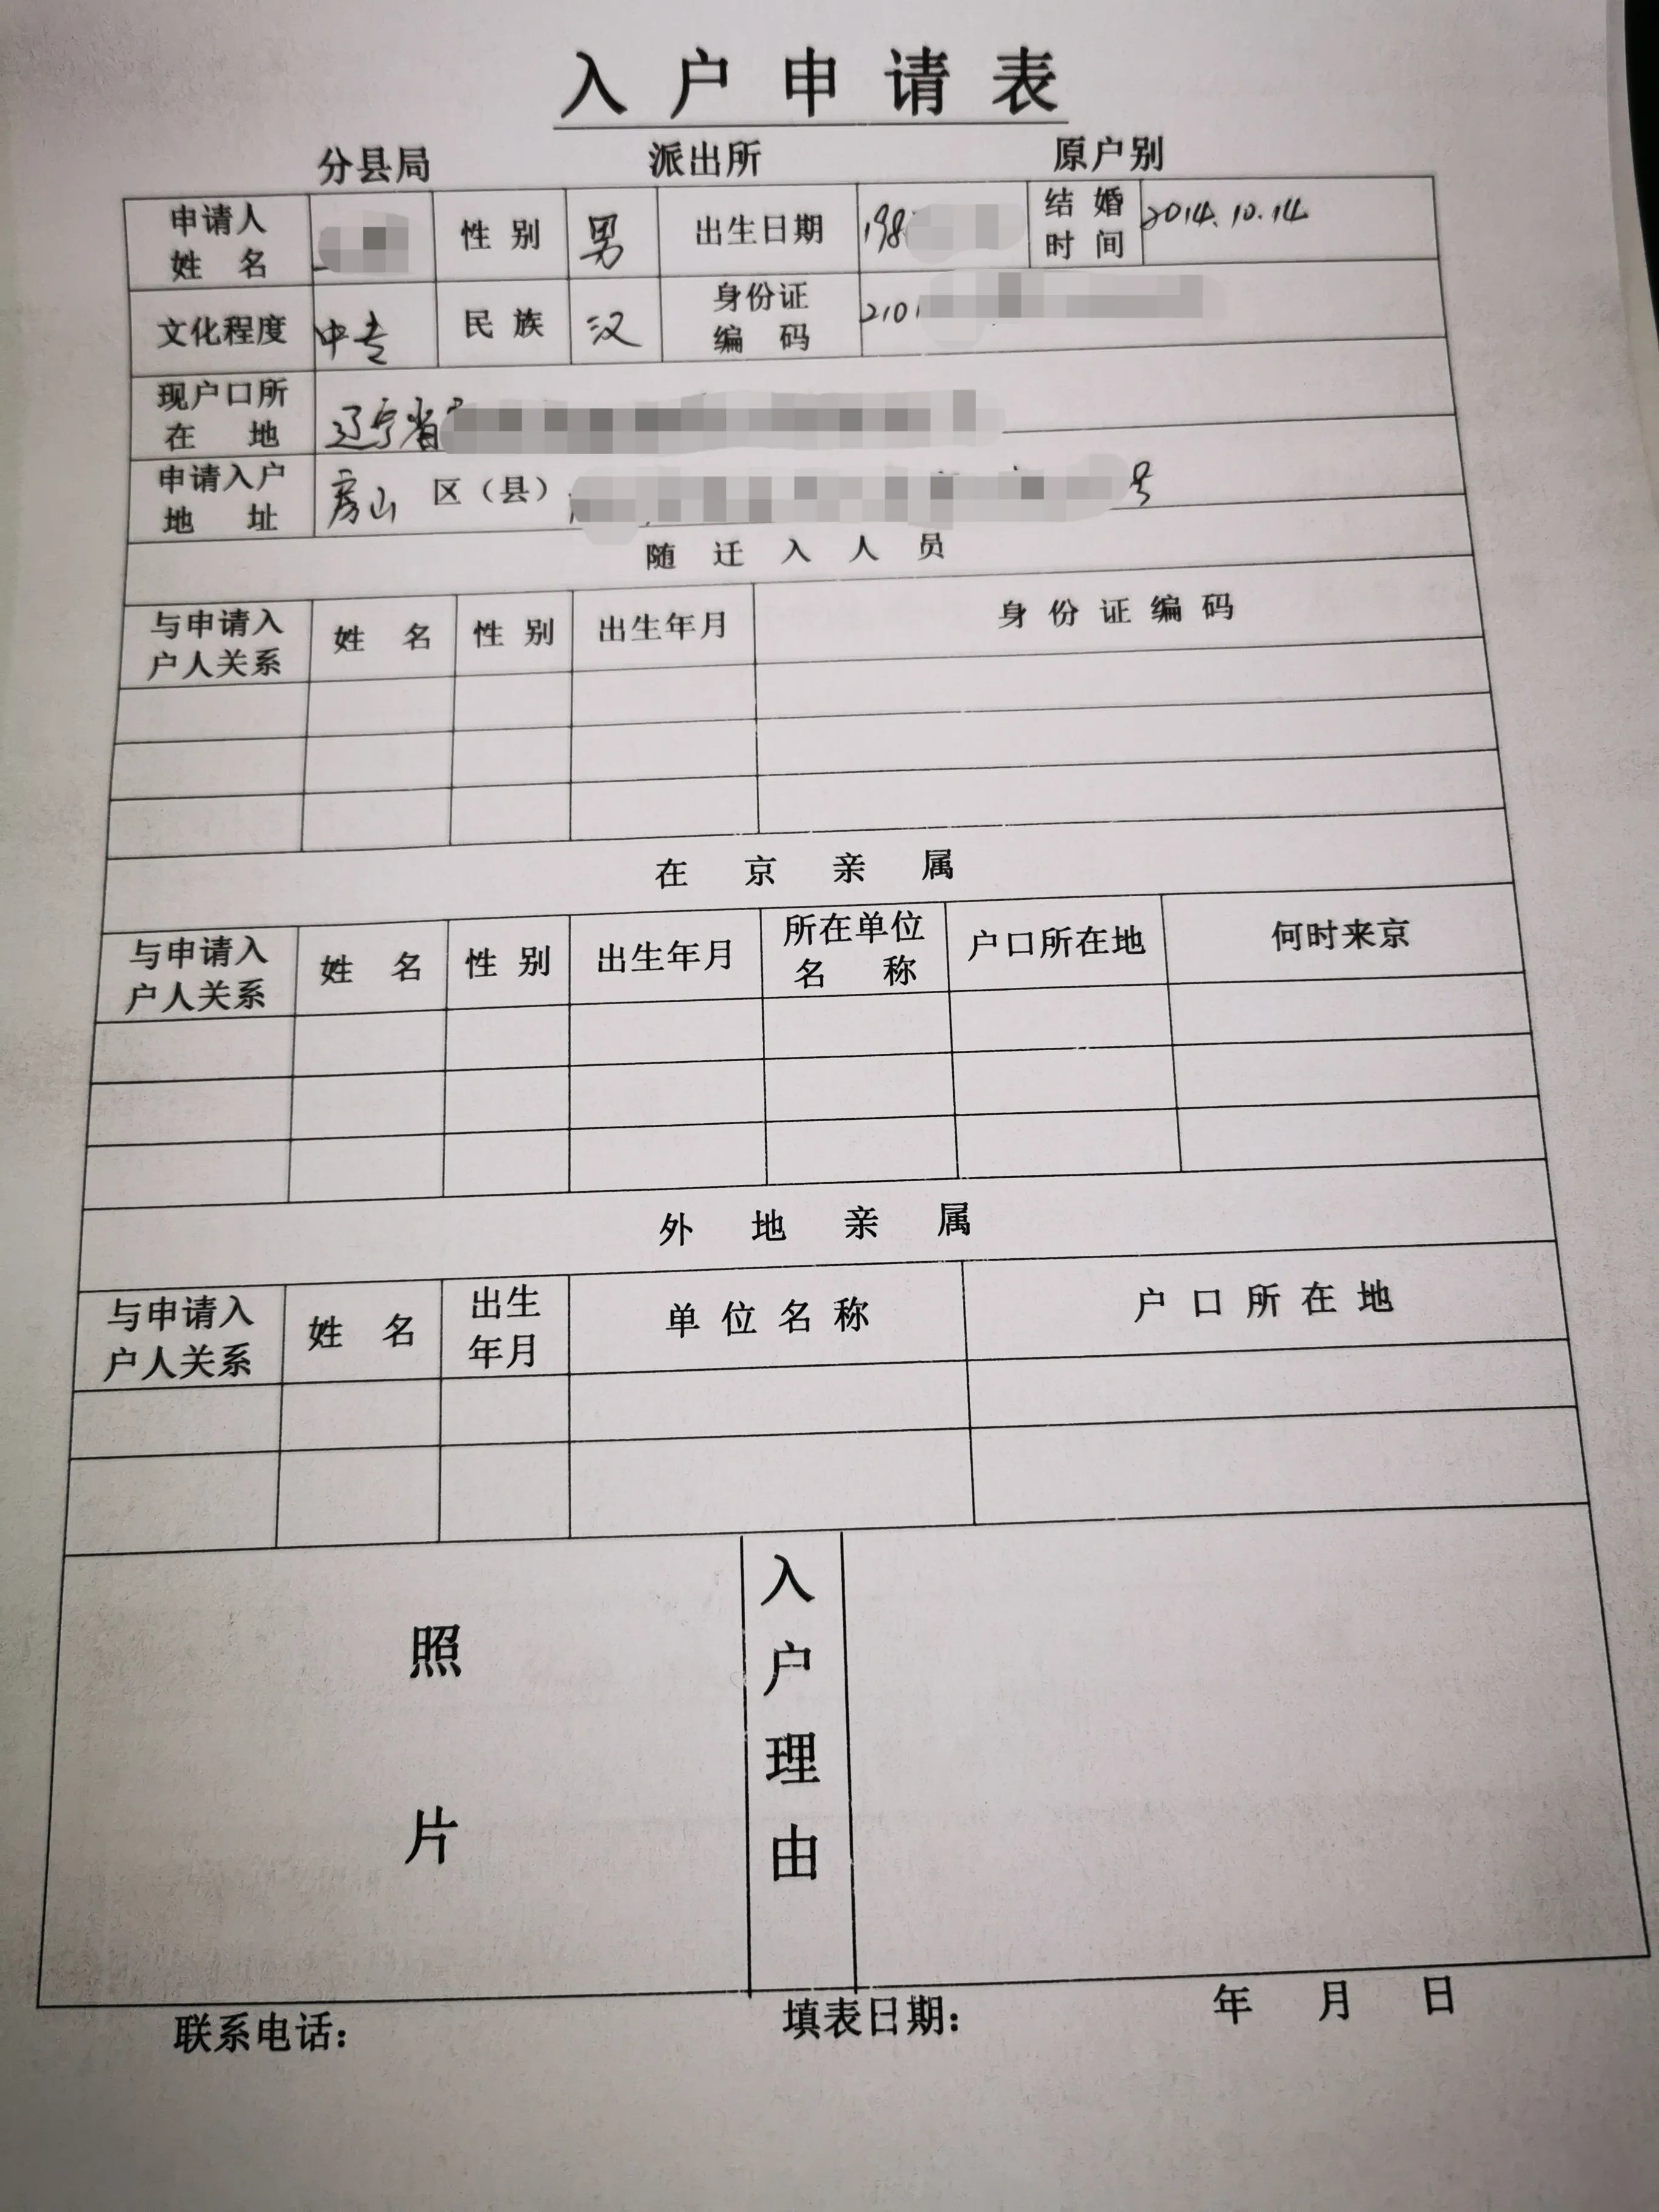 入户申请表
分县局 派出所 原户别
申请人姓名 性别 男 出生日期 198 结婚时间 2014.10.14
文化程度 中专 民族 汉 身份证编码 2101
现户口所在地 辽宁省
申请入户地址 房山 区（县） 号
随迁入人员
与申请入户人关系 姓名 性别 出生年月 身份证编码
在京亲属
与申请入户人关系 姓名 性别 出生年月 所在单位名称 户口所在地 何时来京
外地亲属
与申请入户人关系 姓名 出生年月 单位名称 户口所在地
照片 入户理由
联系电话： 填表日期： 年 月 日